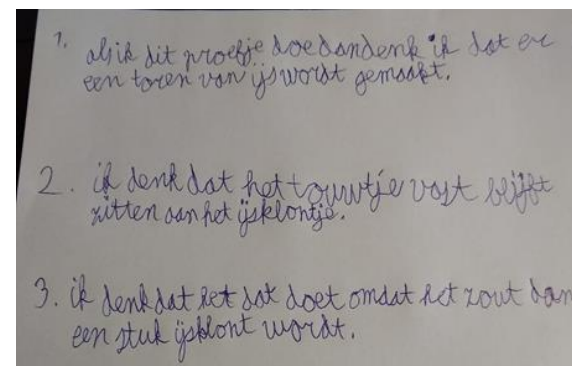 1. als ik dit proefje doe dan denk ik dat er
een toren van ijs wordt gemaakt.
2. ik denk dat het touwtje vast blijft
zitten aan het ijsklontje.
3. ik denk dat het dat doet omdat het zout dan
een stuk ijsklont wordt.